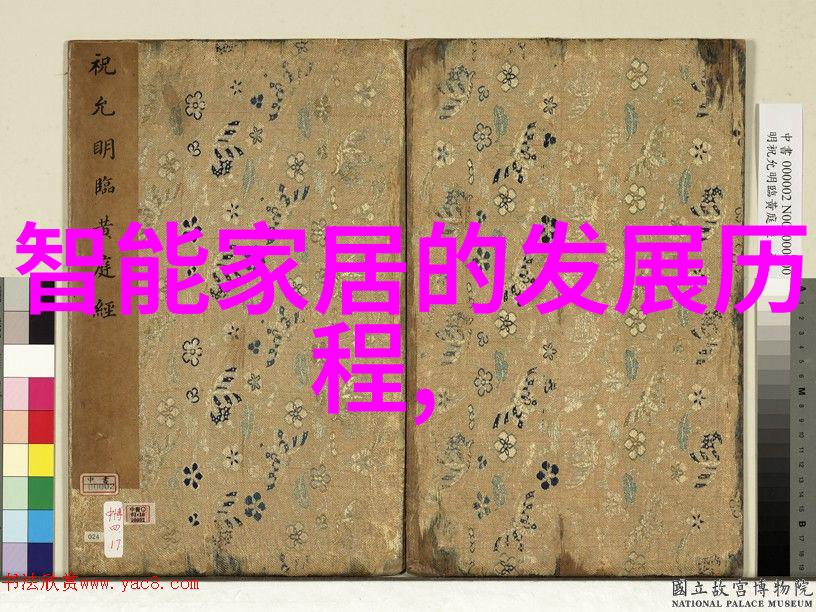 祝允明臨黃庭經
智能家居的发展历
程,
中書
00002
024
中書 000002 N000000000
明祝允明臨黃庭
书法欣赏www.yac8.com
國立故宮博物院
NATIONAL PALACE MUSEUM